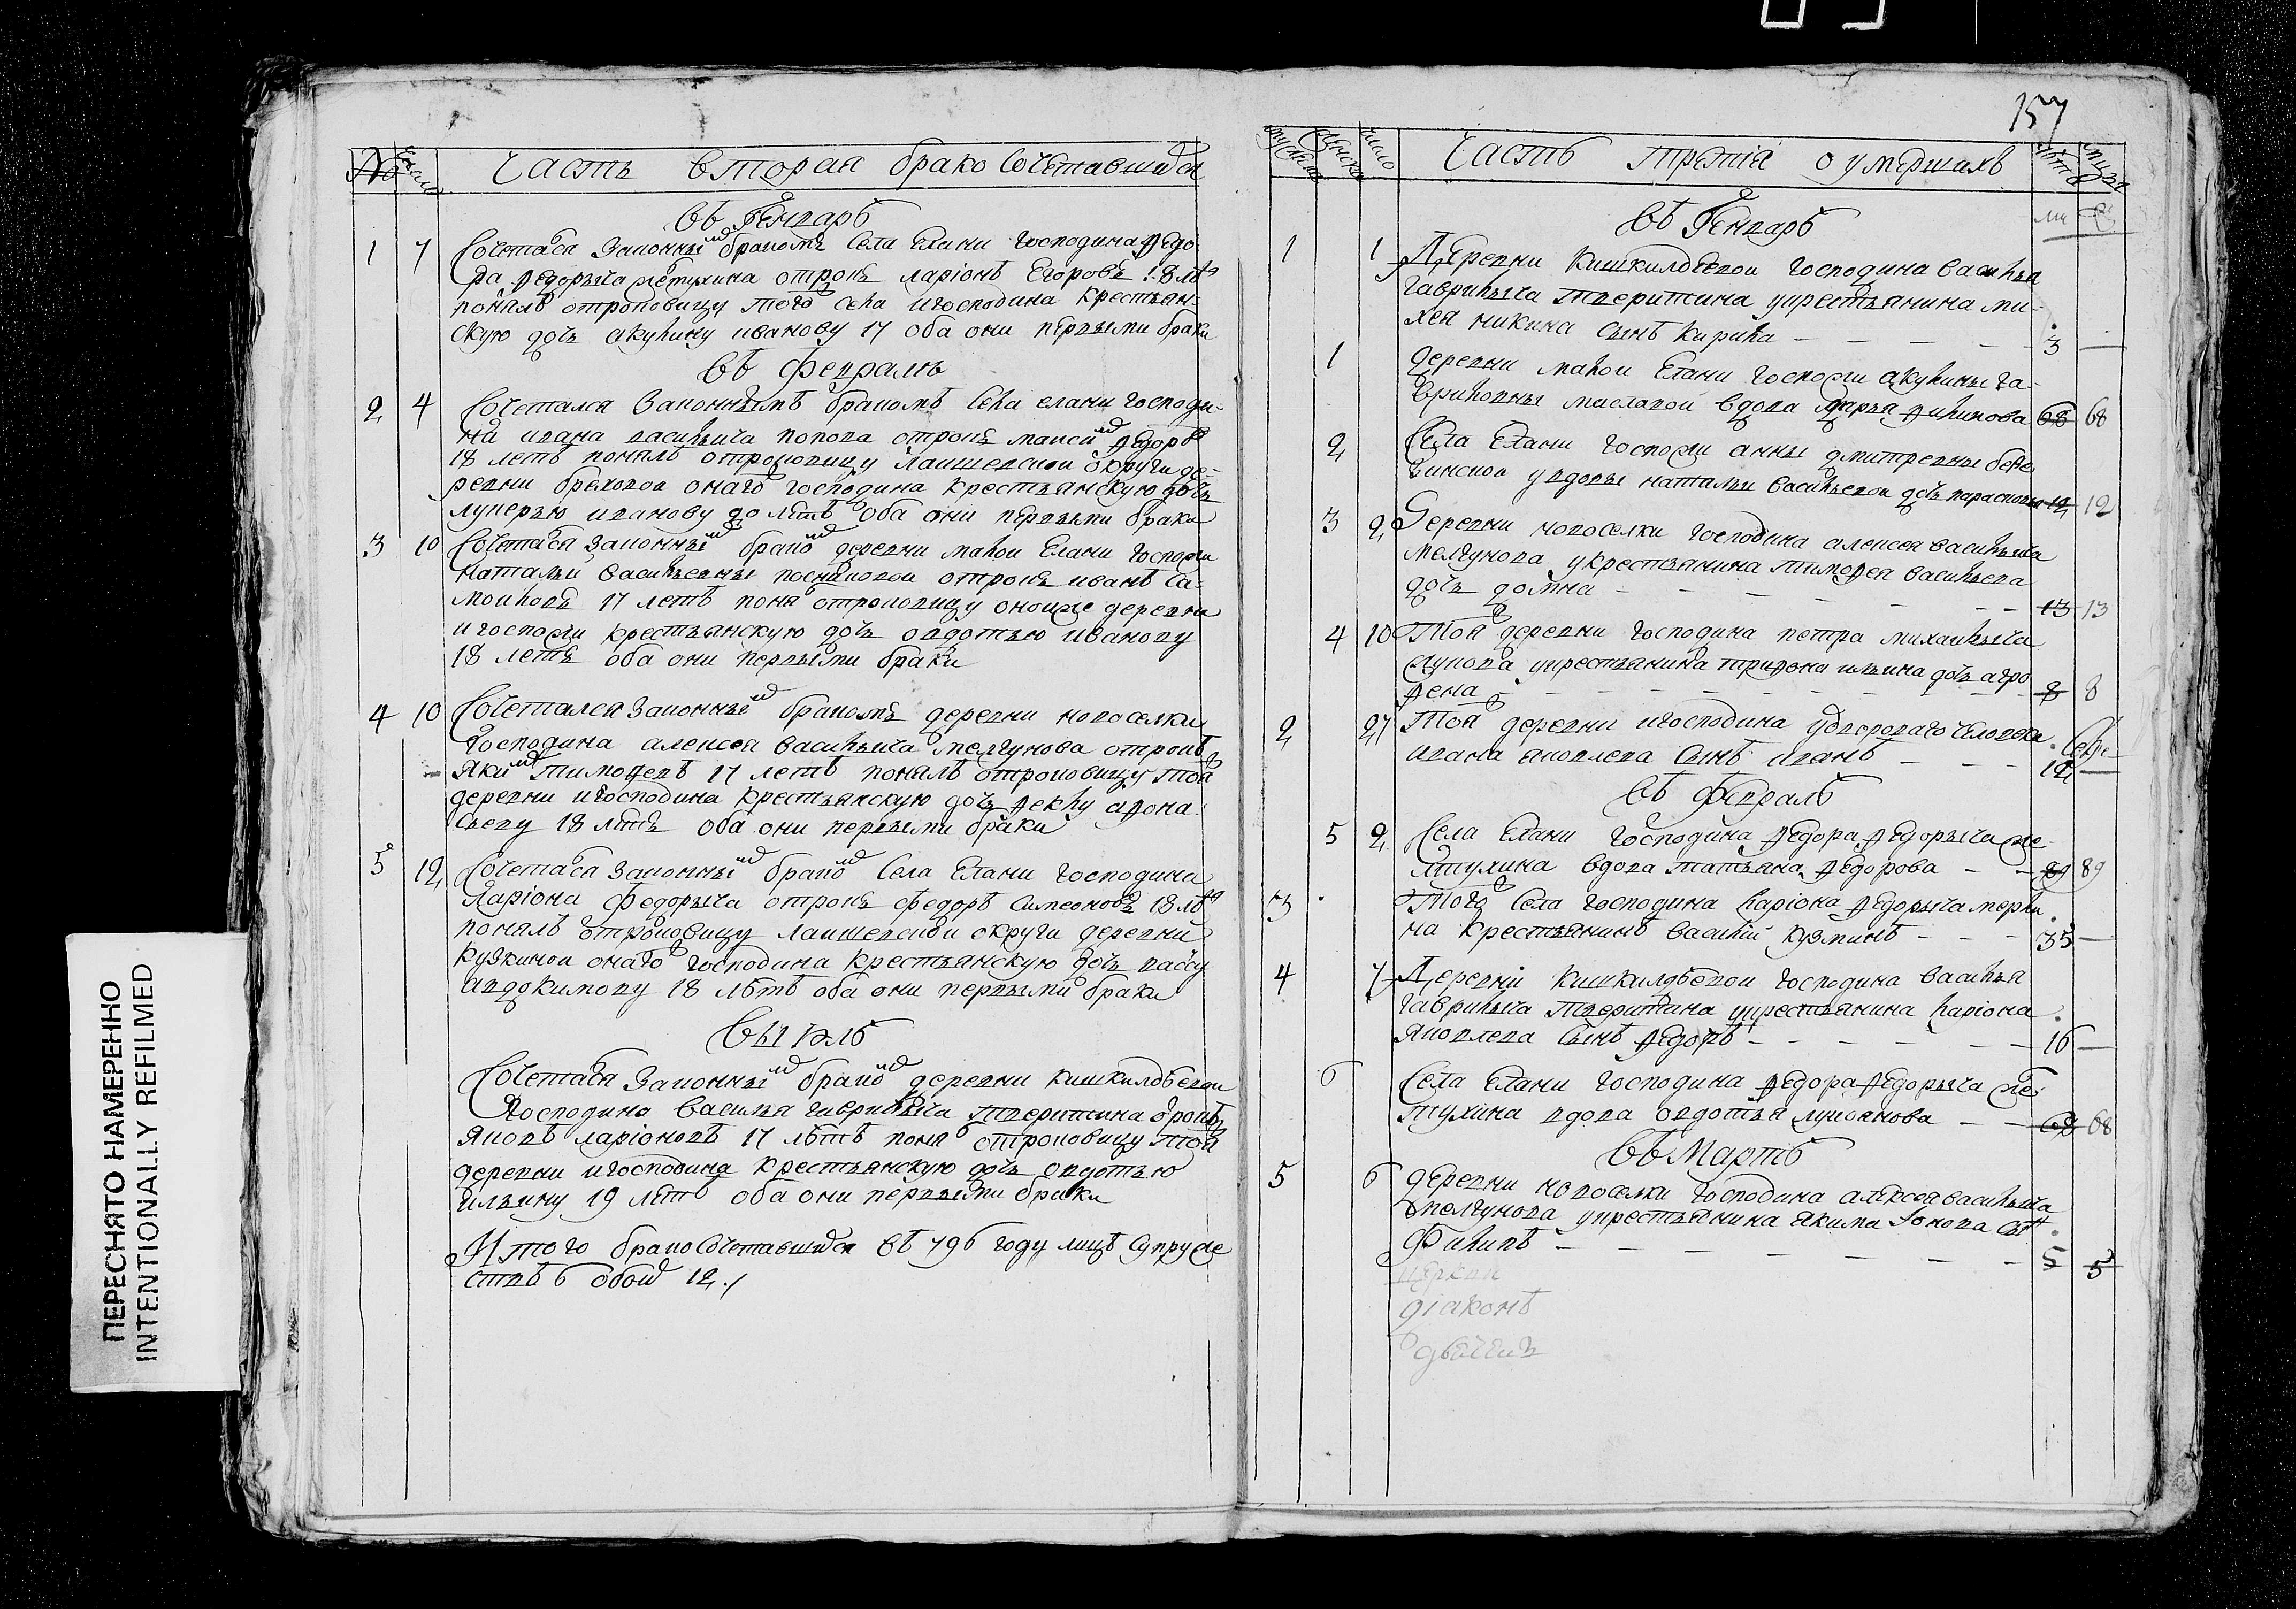 157
№ число Часть вторая брако сочетавшихся
въ Генваръ
1 7 Сочетался законным бракомъ села Елани господина Ѳедо
ра Ѳедорыча отрокъ ларіонъ Егоровъ 18 лѣт
понялъ отроковицу того села и господина крестьян-
скую дочь акулину иванову 17 оба они первыми браки
въ Февралѣ
2 4 Сочетался законнымъ бракомъ села елани господи-
на ивана васильича попова отрокъ максим Ѳедоровъ
18 летъ понялъ отроковицу лаишевской округи де-
ревни бреховой онаго господина крестьянскую дочь
лукерью иванову лѣтъ оба они первыми браки
3 10 Сочетался законным браком деревни малой Елани госпожи
натальи васильевны отрокъ иванъ са-
мойловъ 17 летъ понял отроковицу оной же деревни
и госпожи крестьянскую дочь овдотью иванову
18 летъ оба они первыми браки
4 10 Сочетался законным бракомъ деревни новоселки
господина алексея васильича мелгунова отрокъ
Яким тимоѲевъ 17 летъ понялъ отроковицу той
деревни и господина крестьянскую дочь Ѳеклу аѲона-
сьеву 18 лѣтъ оба они первыми браки
5 12 Сочетался законным браком села Елани господина
Ларіона Федорыча отрокъ Федоръ Симеоновъ 18 лѣт
понялъ отроковицу лаишевской округи деревни
кузкиной онаго господина крестьянскую дочь вассу
авдокимову 18 лѣтъ оба они первыми браки
въ Іюлѣ
Сочетался законным браком деревни кишкилдѣевой
господина василья гаврилыча тверитина отрокъ
Яковъ ларіоновъ 17 лѣтъ понял отроковицу той
деревни и господина крестьянскую дочь овдотью
ильину 19 лѣтъ оба они первыми браки
Итого бракосочетавшихся въ 796 году лицъ супруже
ствъ 6 обоих 12
мужеска женска число Часть третія о умершихъ лѣта
въ Генваръ
1 1 Деревни Кишкилдѣевой господина василья
гаврилыча тверитина у крестьянина ми-
хея никина сынъ Кирила — 3 —
1 деревни малой Елани госпожи акулины га-
вриловны масловой вдова дарья Ѳилипова 68 68
2 Села Елани госпожи анны дмитревны
у вдовы натальи васильевой дочь парасковья 12 12
3 2 Деревни новоселки господина алексея васильича
мелгунова у крестьянина тимоѲея васильева
дочь домна — 13 13
4 10 Той деревни господина петра михайлыча
у крестьянина триѲона ильина дочь агро
Ѳена — 8 8
2 27 Той деревни и господина у дворового человека
ивана яковлева сынъ иванъ — 12 —
въ Февралѣ
5 2 Села Елани господина Ѳедора Ѳедорыча
вдова татьяна Ѳедорова — 89 89
3 Того села господина ларіона Ѳедорыча
крестьянинъ василій кузминъ — 35 —
4 7 Деревни кишкилдѣевой господина василья
гаврилыча тверитина у крестьянина ларіона
яковлева сынъ Ѳедоръ — 16 —
6 Села Елани господина Ѳедора Ѳедорыча
вдова овдотья лукоянова — 68 68
въ Мартѣ
5 6 деревни новоселки господина алексея васильича
мелгунова у крестьянина якима сын
Филипъ — 5 5
церкви
діаконъ
дьячекъ
ПЕРЕСНЯТО НАМЕРЕННО
INTENTIONALLY REFILMED